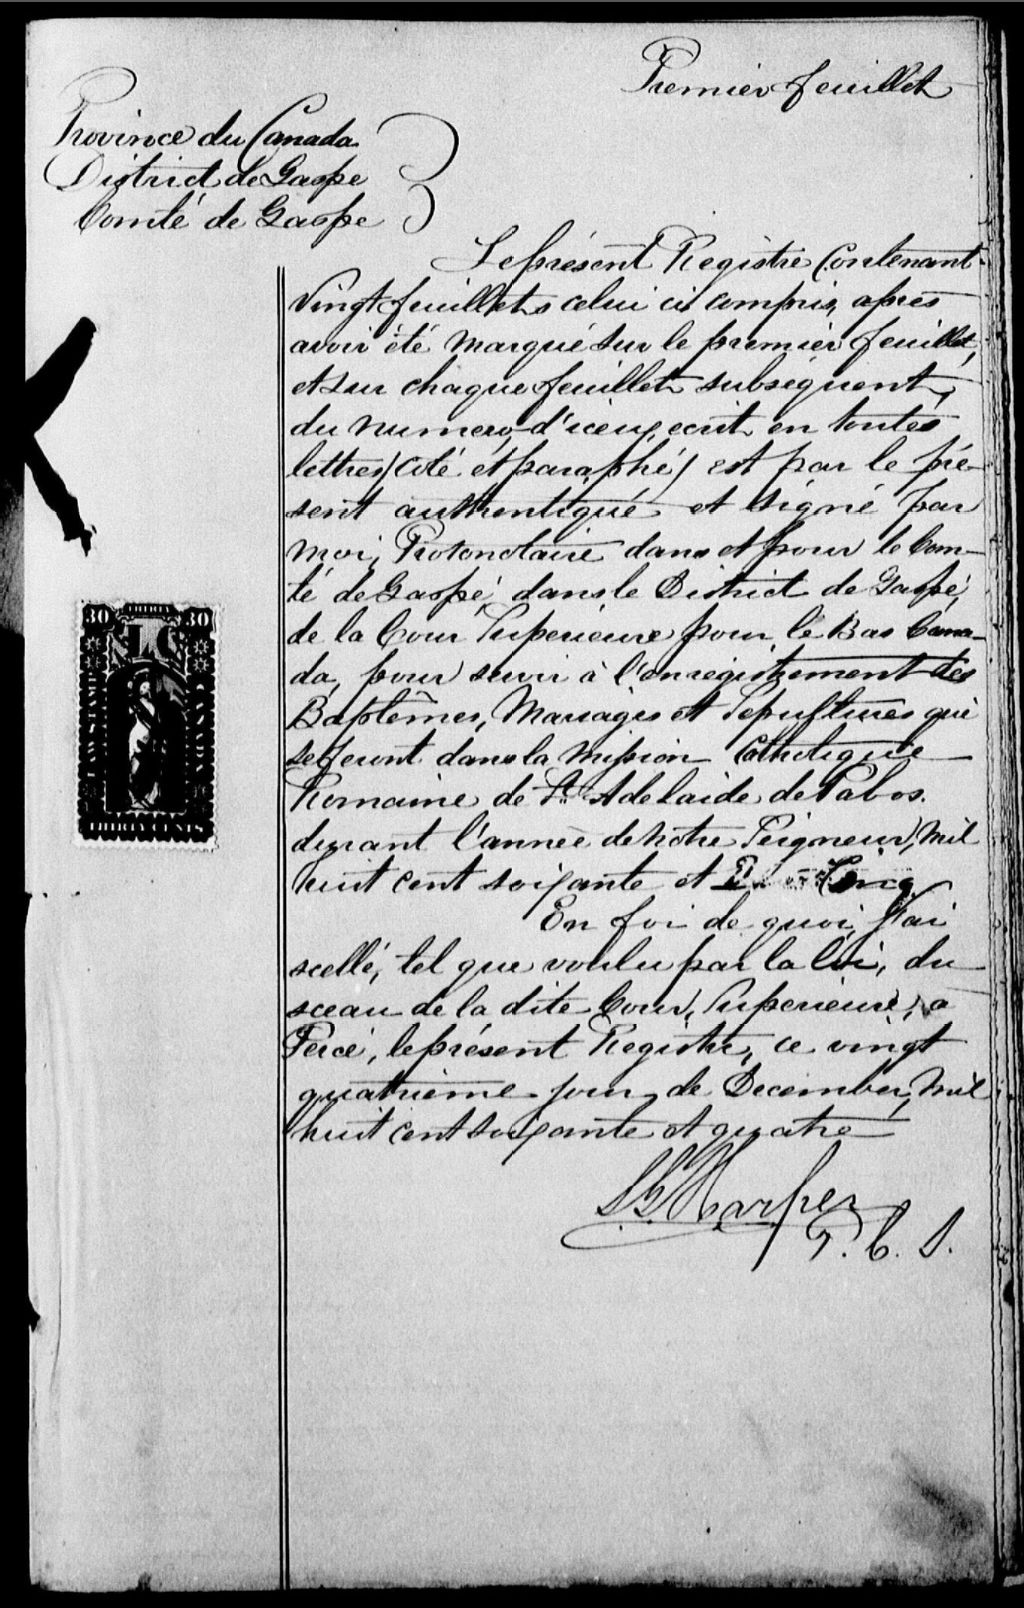 Premier feuillet
Province du Canada
District de Gaspe
Comté de Gaspe
Le présent Registre Contenant
Vingt feuillets celui ci compris, après
avoir été marqué sur le premier feuillet,
et sur chaque feuillet subséquent,
du numero d'iceux, ecrit en toutes
lettres, (coté et paraphé) est par le pré-
sent authentiqué et signé par
moi, Protonotaire dans et pour le Com-
té de Gaspé, dans le District de Gaspé,
de la Cour Superieure pour le Bas Cana-
da, pour servir à l'enregistrement des
Baptêmes, Mariages et Sepultures qui
se feront dans la Mission Catholique
Romaine de Ste Adelaide de Pabos.
durant l'année de notre Seigneur, Mil
huit cent soixante et Cinq
En foi de quoi, J'ai
scellé, tel que voulu par la loi, du
sceau de la dite Cour Superieure, a
Percé, le présent Registre, ce vingt
quatrième jour de December, Mil
huit cent soixante et quatre
Harper
P. C. S.
30 THIRTY 30
L C
LAW STAMP
CANADA
THIRTY CENTS